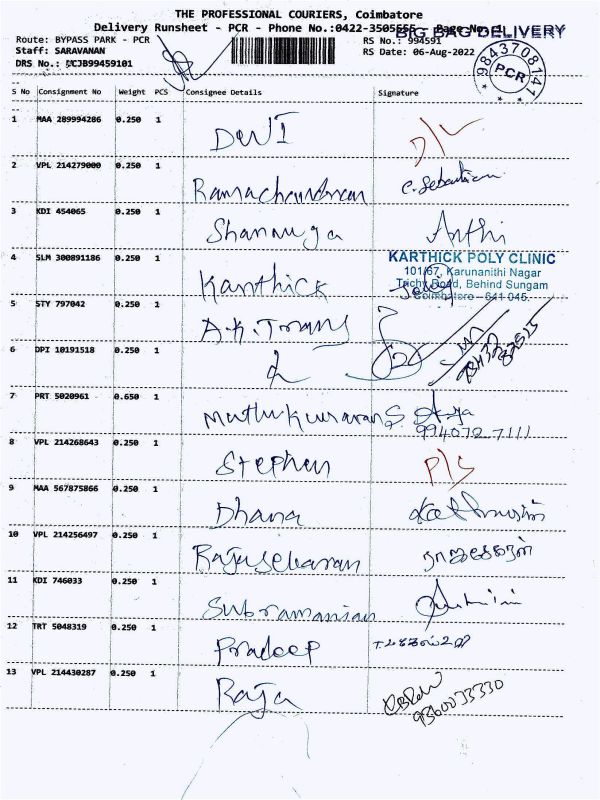 THE PROFESSIONAL COURIERS, Coimbatore
Delivery Runsheet - PCR - Phone No.:0422-3505555 Page No
BIG BAG DELIVERY
Route: BYPASS PARK - PCR
RS No.: 994591
Staff: SARAVANAN
RS Date: 06-Aug-2022
DRS No.: MCJB99459101
9843708141
PCR
S No Consignment No Weight PCS Consignee Details Signature
1 MAA 289994286 0.250 1 D/L
2 VPL 214279000 0.250 1 Ramachandran C. Sebastian
3 KDI 454065 0.250 1 Shanmuga Arthi
4 SLM 300891186 0.250 1 Karthick
KARTHICK POLY CLINIC
101/67, Karunanithi Nagar
Trichy Road, Behind Sungam
Coimbatore - 641 045.
5 STY 797042 0.250 1 A.K. Trans
6 DPI 10191518 0.250 1
7 PRT 5020961 0.650 1 Muthukumaran S
994072-7111
8 VPL 214268643 0.250 1 Stephen P/S
9 MAA 567875866 0.250 1 Dhana
10 VPL 214256497 0.250 1 Rajasekaran ராஜசேகரன்
11 KDI 746033 0.250 1 Subramanian
12 TRT 5048319 0.250 1 Pradeep
13 VPL 214430287 0.250 1 Raja
9360033330